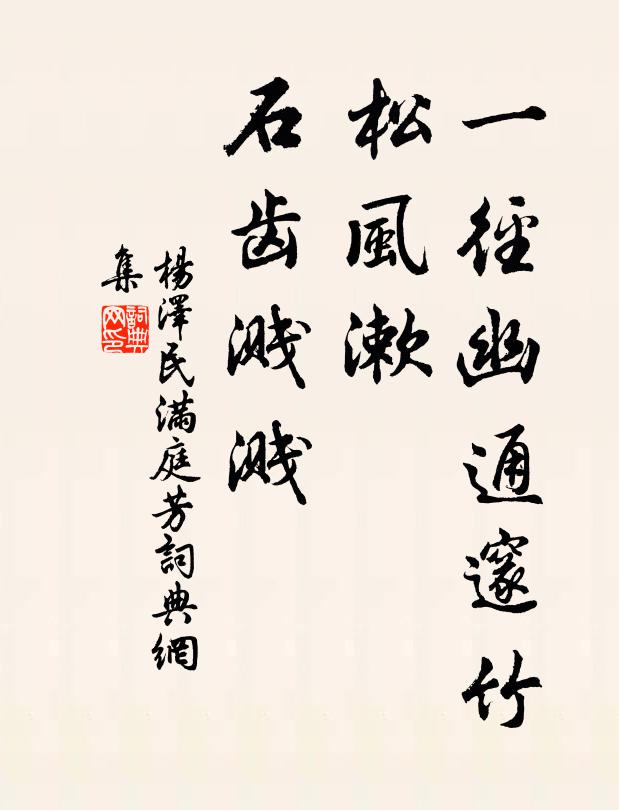 一徑幽通邃竹
松風漱
石齿溅溅
楊澤民滿庭芳詞典網
集
詞典
网印